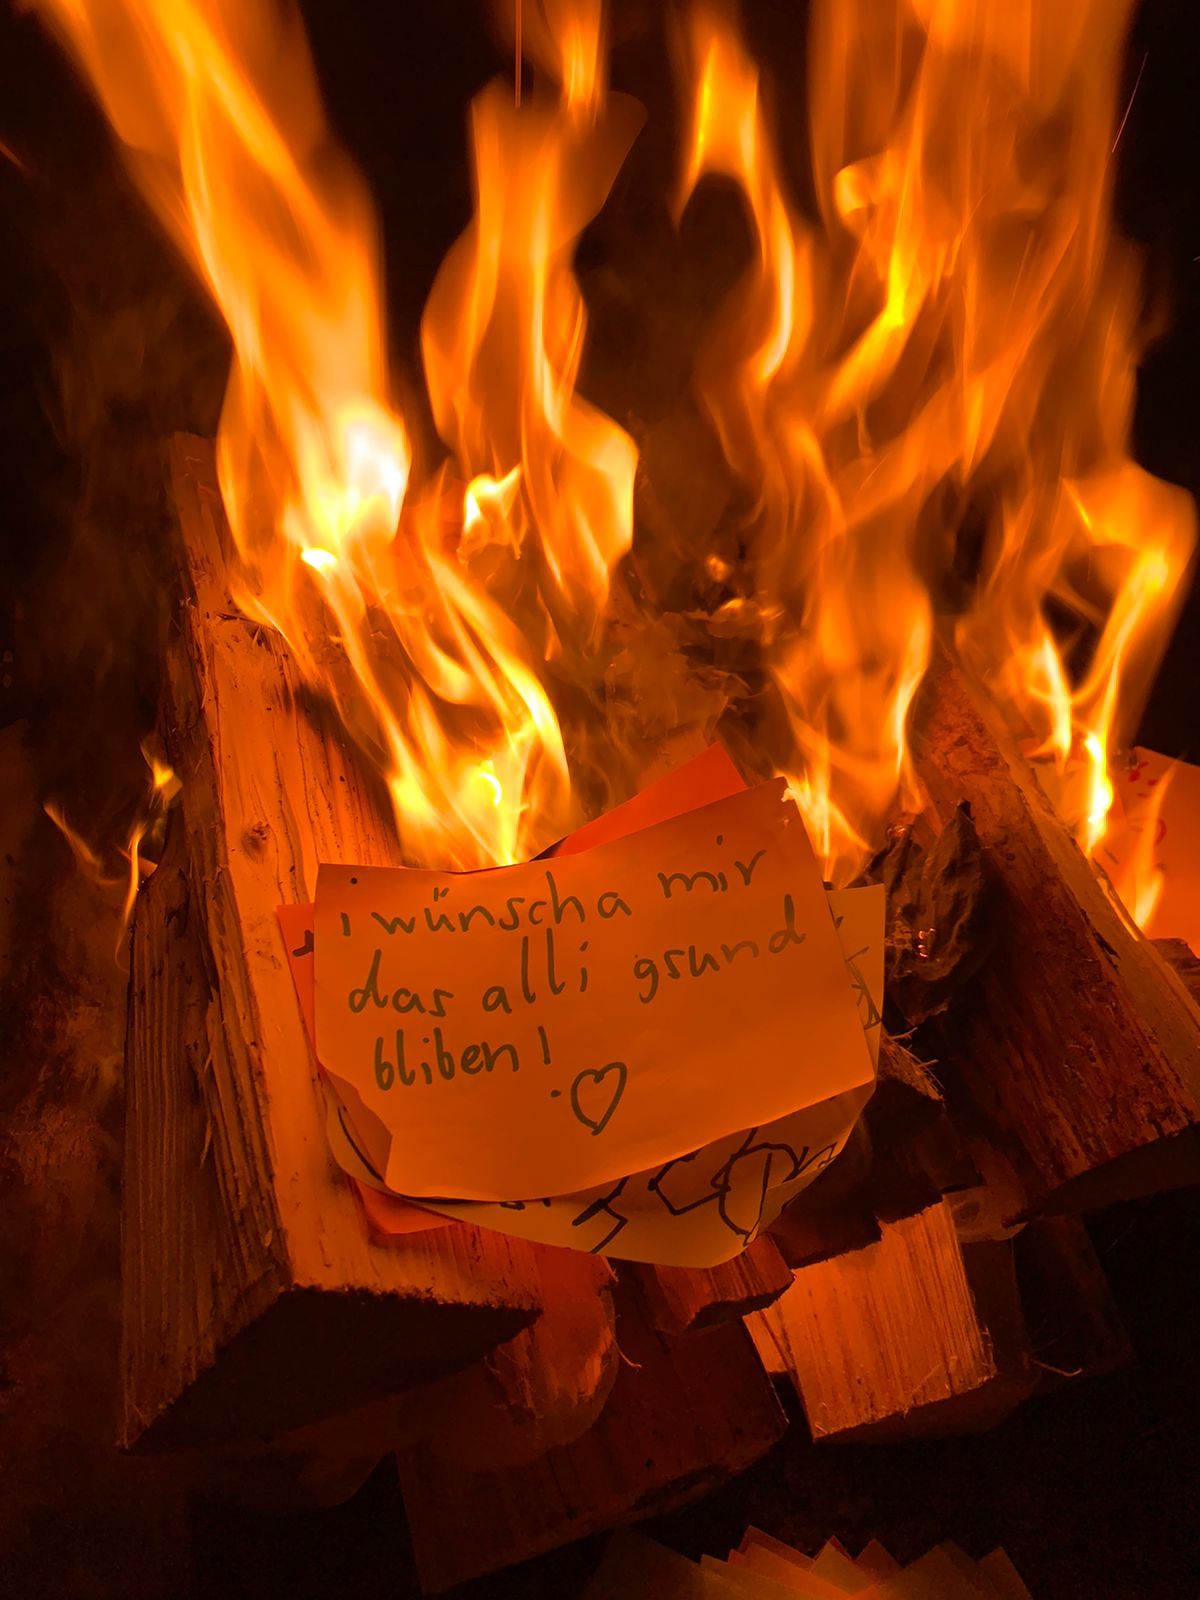 i wünscha mir
das alli gsund
bliben!